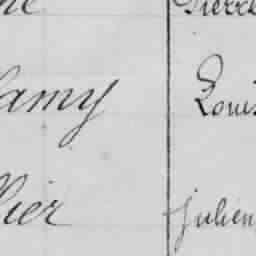 Pierre
lamy Louis
lier julien